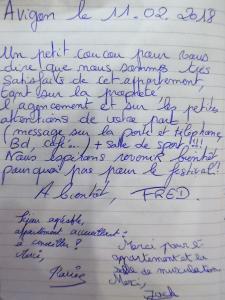 Avignon le 11.02.2018
Un petit coucou pour vous
dire que nous sommes très
satisfaits de cet appartement,
tant sur la propreté
l'agencement et sur les petites
attentions de votre part
(message sur la porte et téléphone
Bd, café...) + salle de sport!!!
Nous espérons revenir bientôt
pourquoi pas pour le festival!!
A bientôt, FRED.
Séjour agréable,
appartement accueillant:
à conseiller!
Merci,
Merci pour l'
appartement et la
salle de musculation
Merci,